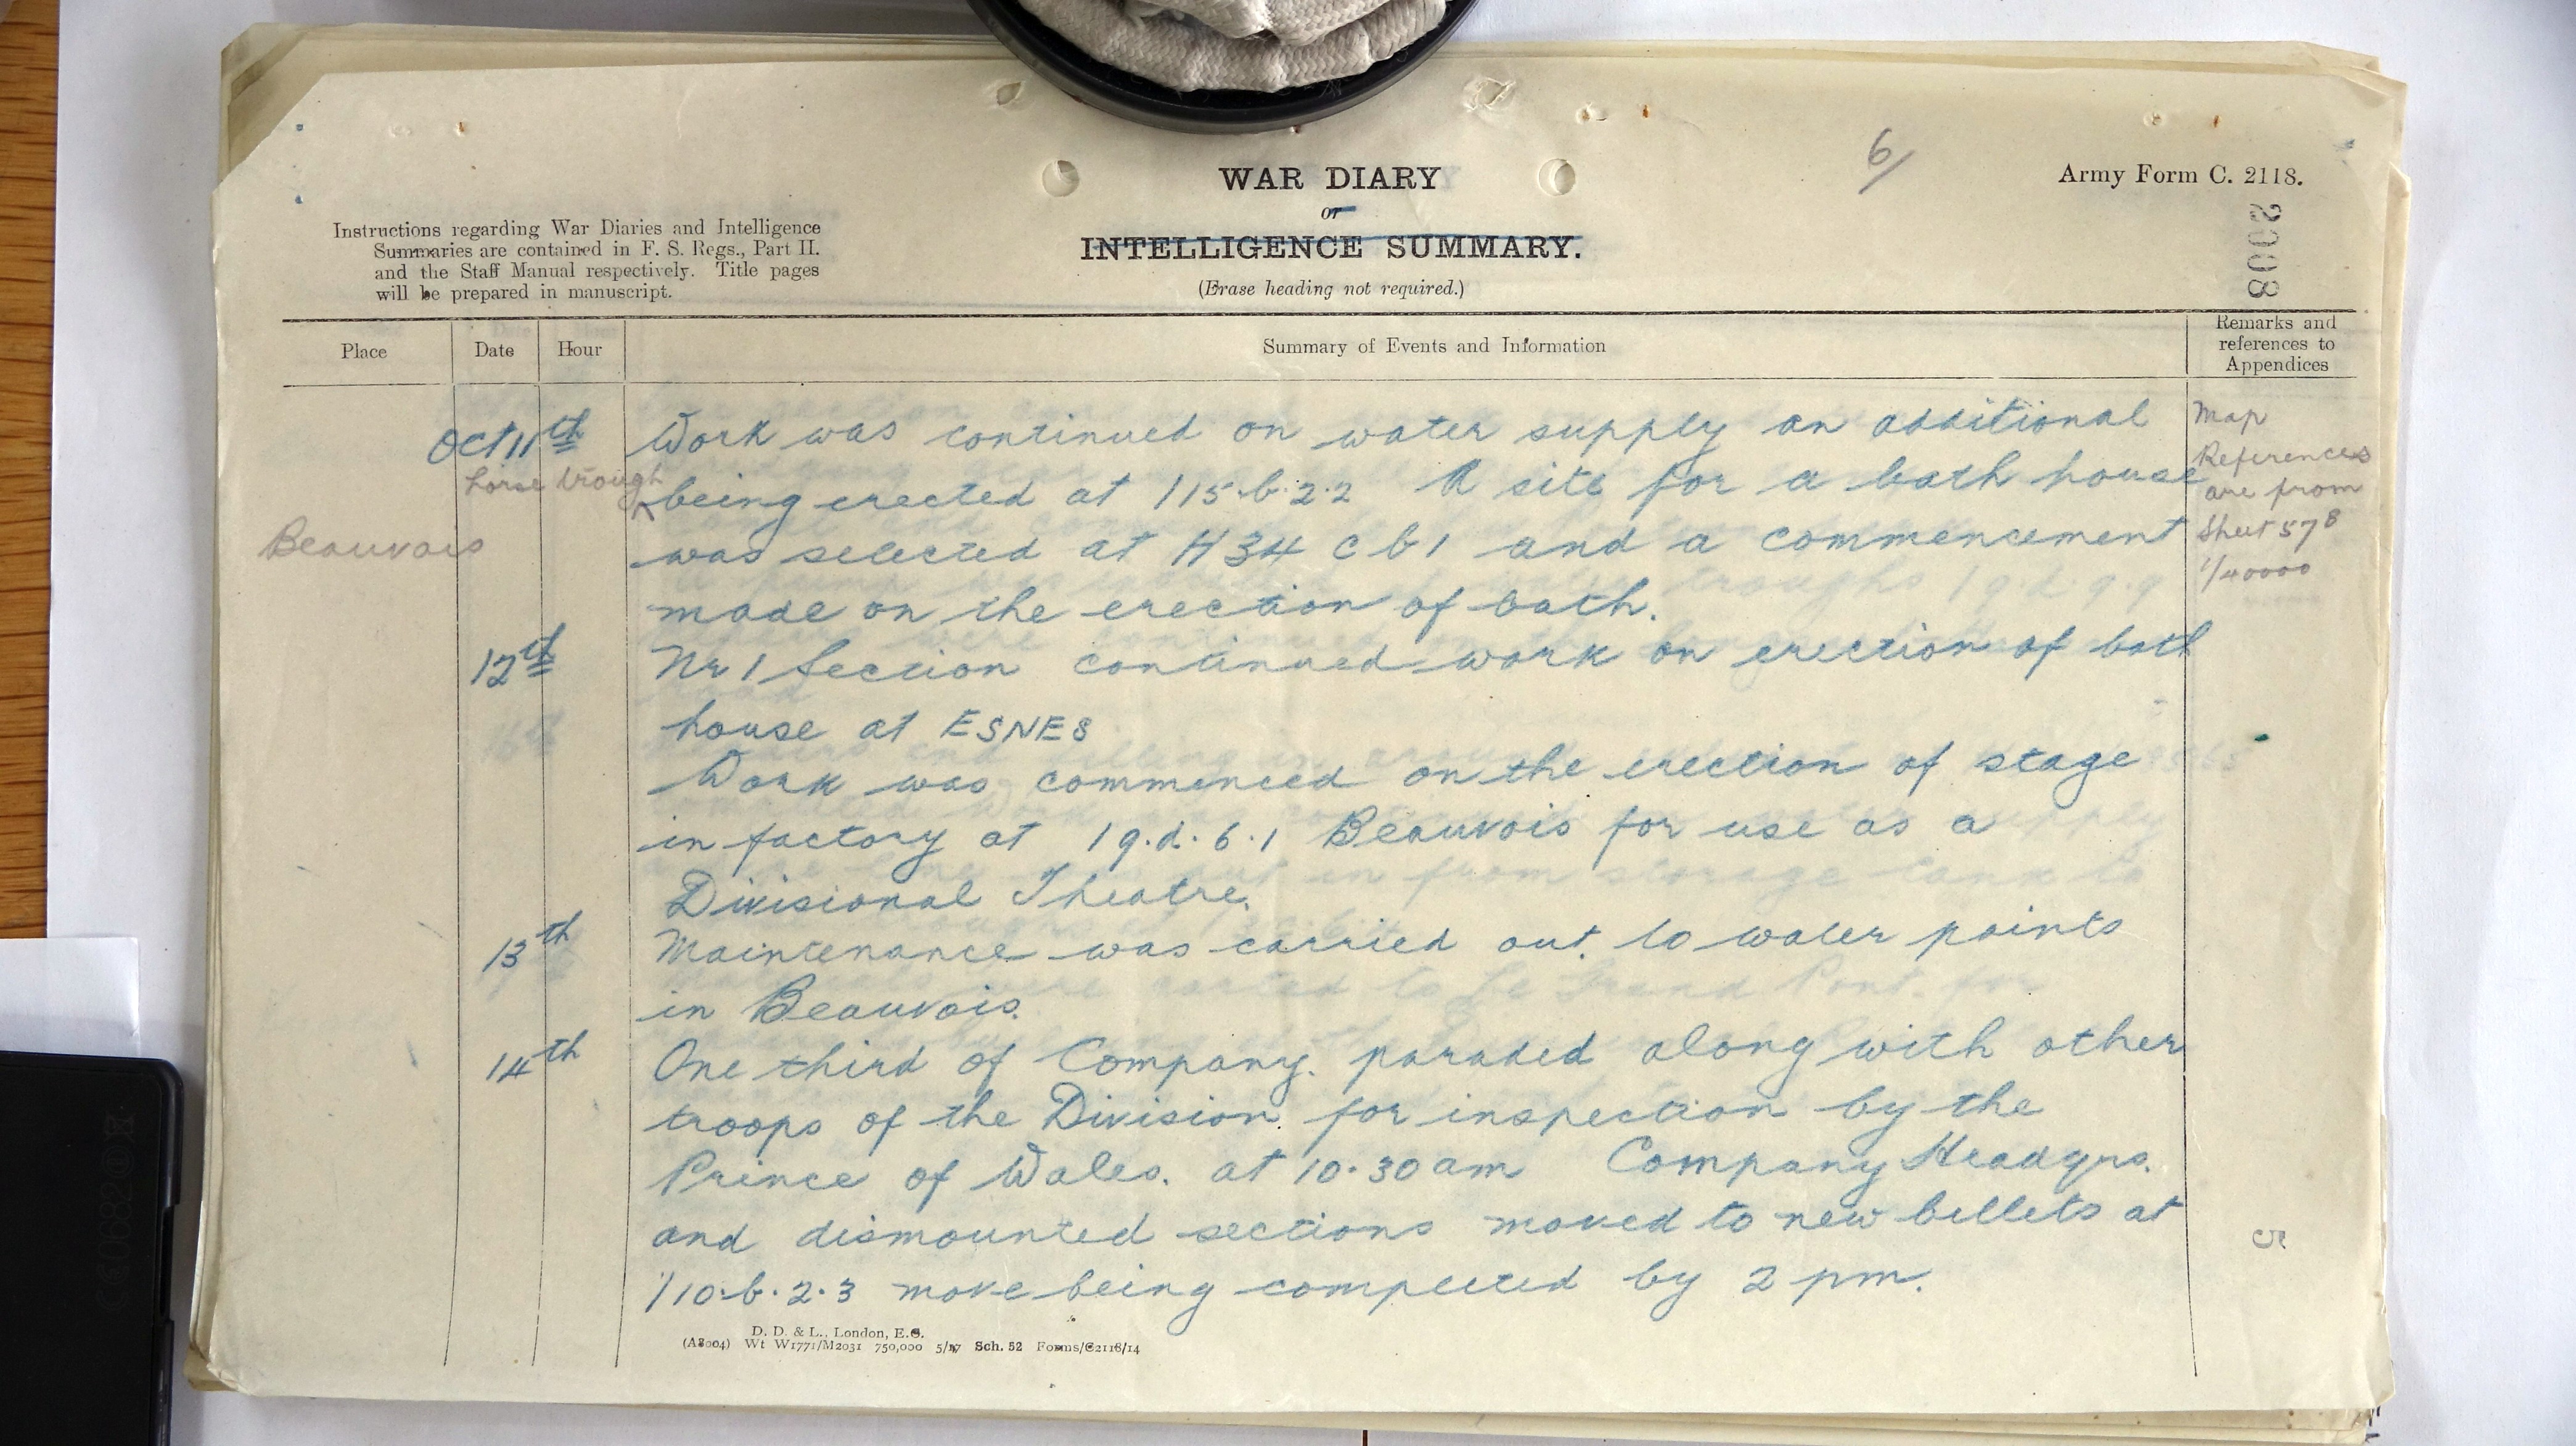 6/
WAR DIARY
or
INTELLIGENCE SUMMARY.
(Erase heading not required.)
Army Form C. 2118.
2008
Instructions regarding War Diaries and Intelligence
Summaries are contained in F. S. Regs., Part II.
and the Staff Manual respectively. Title pages
will be prepared in manuscript.
Place Date Hour Summary of Events and Information Remarks and
references to
Appendices
Oct 11th Work was continued on water supply an additional
horse trough being erected at I15.b.2.2 A site for a bath house
Beauvois was selected at H34 c b 1 and a commencement
made on the erection of bath.
Map
References
are from
Sheet 57B
1/40000
12th Nr 1 Section continued work on erection of bath
house at ESNES
Work was commenced on the erection of stage
in factory at I9.d.6.1 Beauvois for use as a
Divisional Theatre.
13th Maintenance was carried out to water points
in Beauvois.
14th One third of Company. paraded along with other
troops of the Division for inspection by the
Prince of Wales. at 10.30 am Company Headqrs.
and dismounted sections moved to new billets at
I10.b.2.3 move being completed by 2 pm.
5
D. D. & L., London, E.C.
(A8004) Wt W1771/M2031 750,000 5/17 Sch. 52 Forms/C2118/14